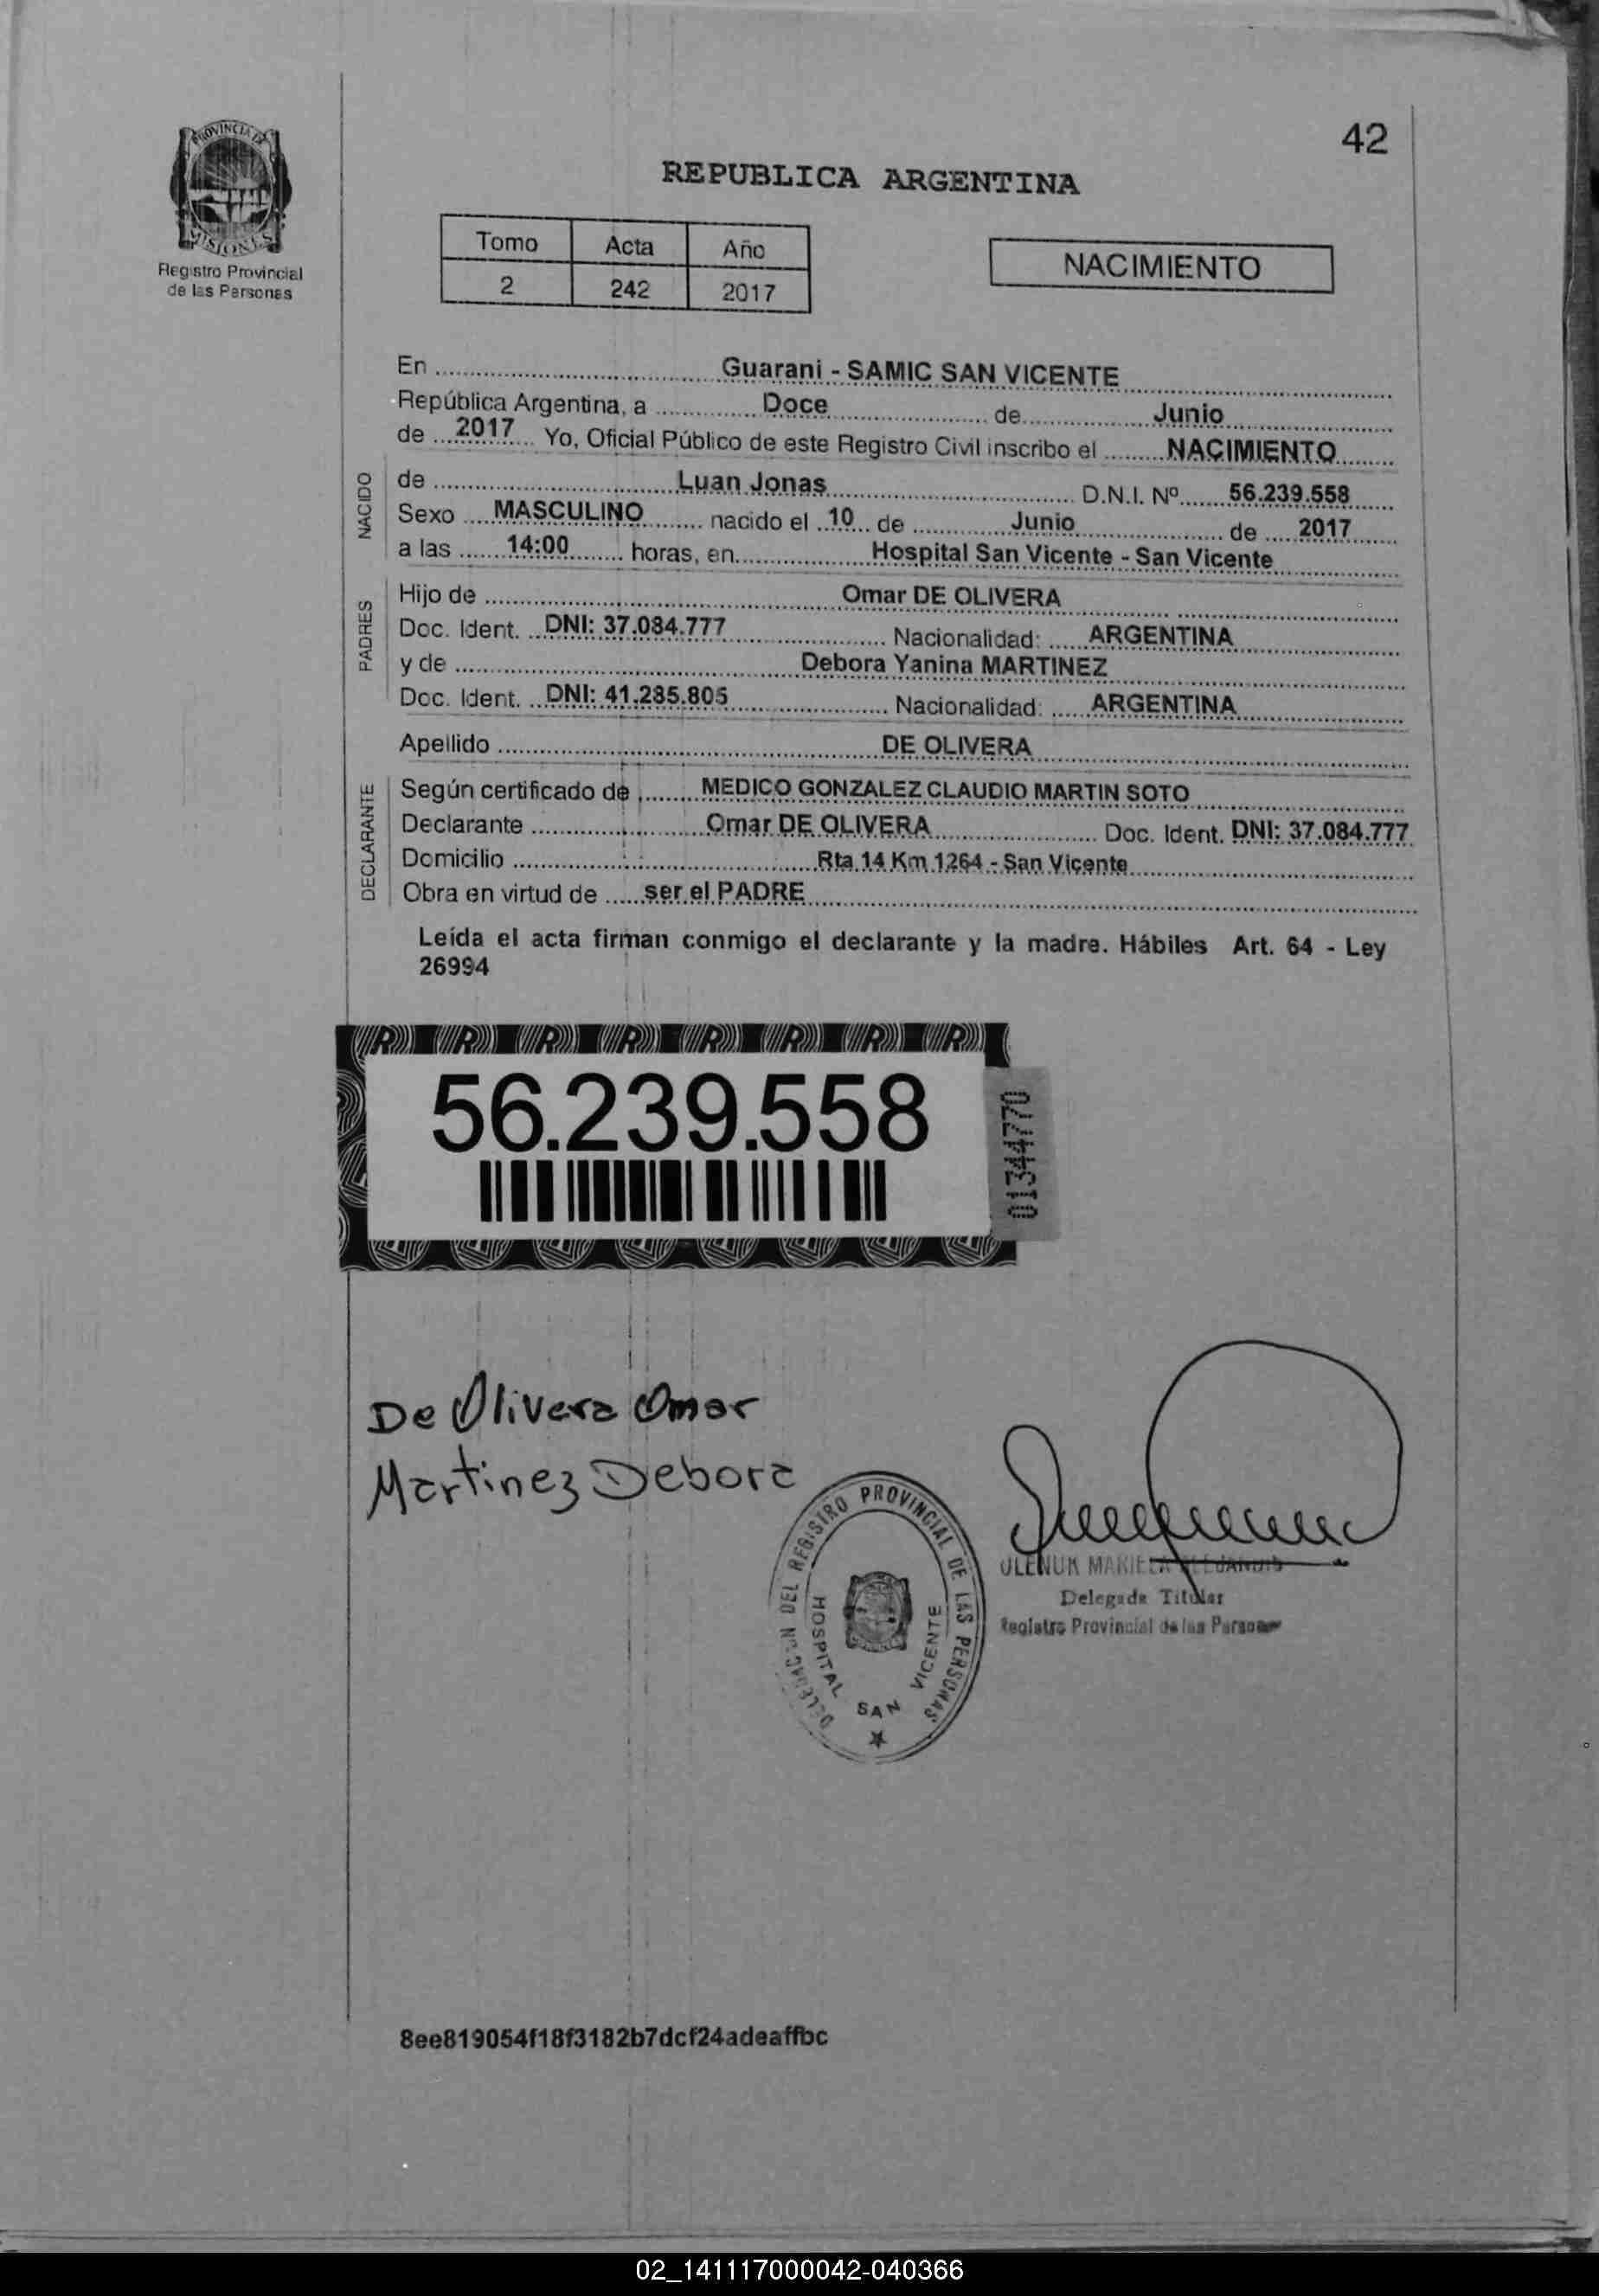 PROVINCIA DE
MISIONES
Registro Provincial
de las Personas
42
REPUBLICA ARGENTINA
Tomo Acta Año
2 242 2017
NACIMIENTO
En Guarani - SAMIC SAN VICENTE
República Argentina, a Doce de Junio
de 2017 Yo, Oficial Público de este Registro Civil inscribo el NACIMIENTO
NACIDO
de Luan Jonas D.N.I. Nº 56.239.558
Sexo MASCULINO nacido el 10 de Junio de 2017
a las 14:00 horas, en Hospital San Vicente - San Vicente
PADRES
Hijo de Omar DE OLIVERA
Doc. Ident. DNI: 37.084.777 Nacionalidad: ARGENTINA
y de Debora Yanina MARTINEZ
Doc. Ident. DNI: 41.285.805 Nacionalidad: ARGENTINA
Apellido DE OLIVERA
DECLARANTE
Según certificado de MEDICO GONZALEZ CLAUDIO MARTIN SOTO
Declarante Omar DE OLIVERA Doc. Ident. DNI: 37.084.777
Domicilio Rta 14 Km 1264 - San Vicente
Obra en virtud de ser el PADRE
Leída el acta firman conmigo el declarante y la madre. Hábiles Art. 64 - Ley
26994
56.239.558
01344770
De Olivera Omar
Martinez Debora
DELEGACION DEL REGISTRO PROVINCIAL DE LAS PERSONAS
HOSPITAL SAN VICENTE
Delegada Titular
Registro Provincial de las Personas
8ee819054f18f3182b7dcf24adeaffbc
02_141117000042-040366